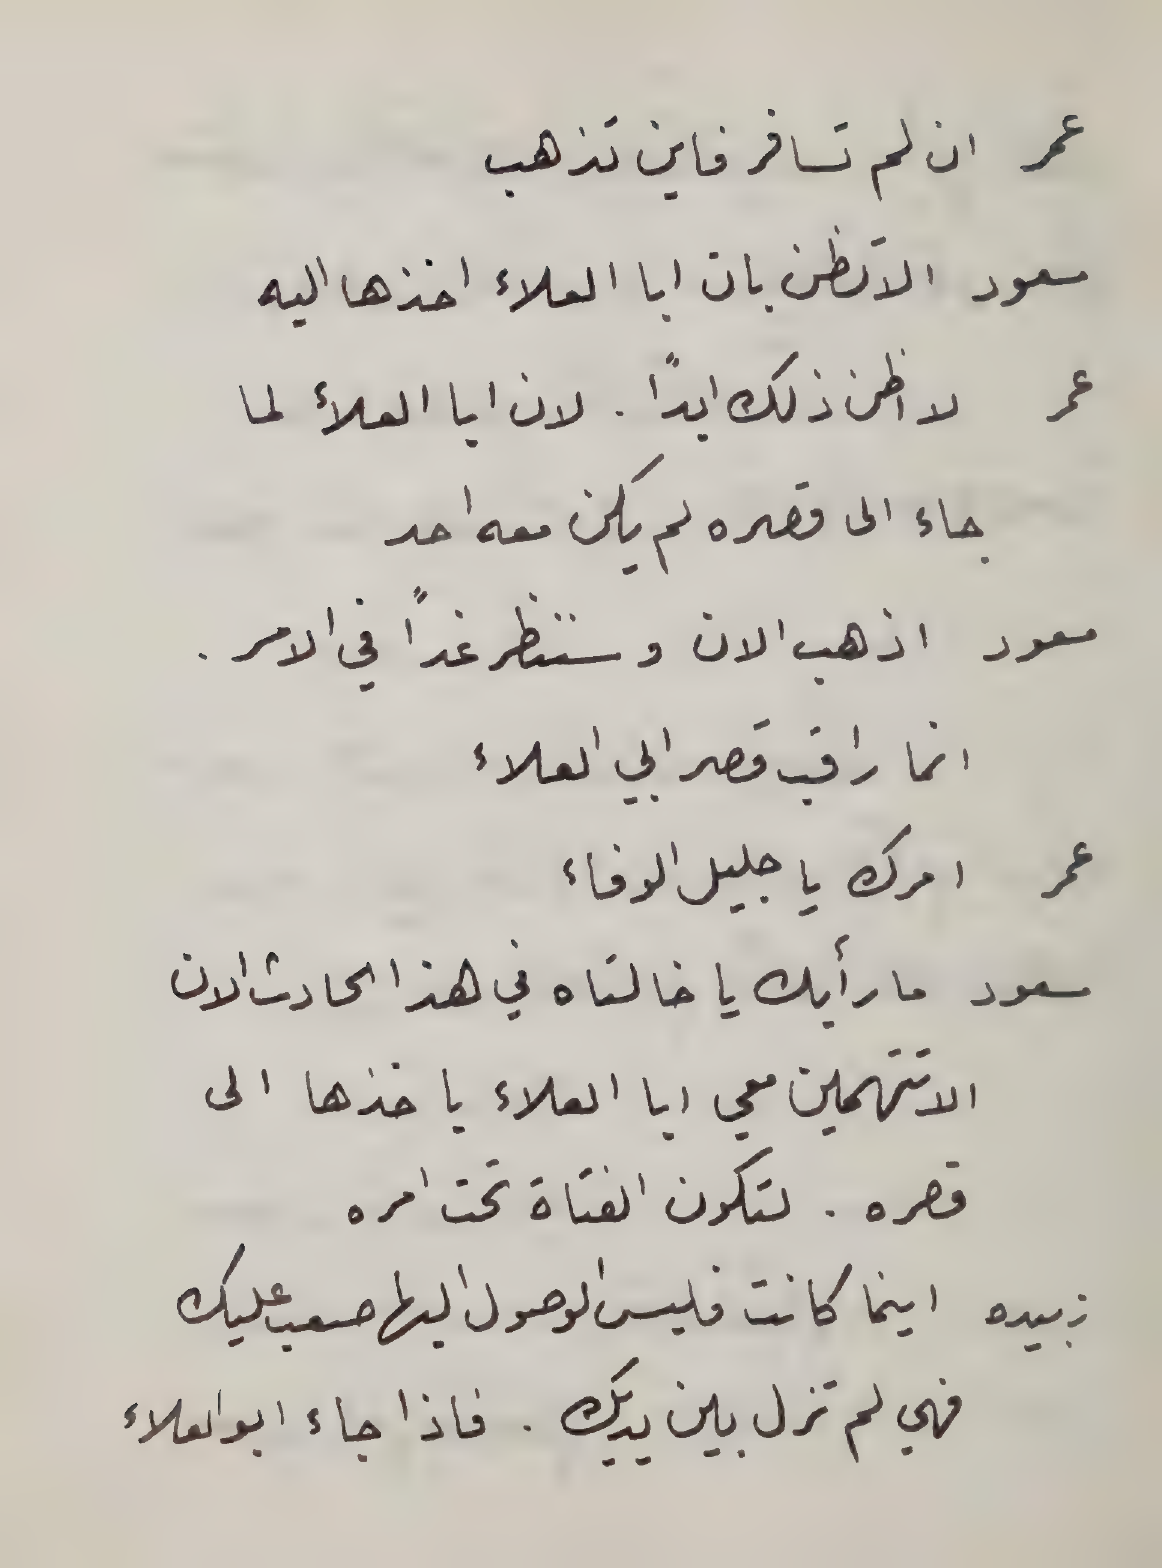 عمر ان لم تسافر فاين تذهب
مسعود الا تظن بان ابا العلاء اخذها اليه
عمر لا اظن ذلك ابدًا . لان ابا العلاء لما
جاء الى قصره لم يكن معه احد
مسعود اذهب الان و سننظر غدًا في الامر .
انما راقب قصر ابي العلاء
عمر امرك يا جليل الوفاء
مسعود ما رأيك يا خالتاه في هذا الحادث الان
الا تتهمين معي ابا العلاء ياخذها الى
قصره . لتكون الفتاة تحت امره
زبيده اينما كانت فليس الوصول اليها صعب عليك
فهي لم تزل بين يديك . فاذا جاء ابو العلاء